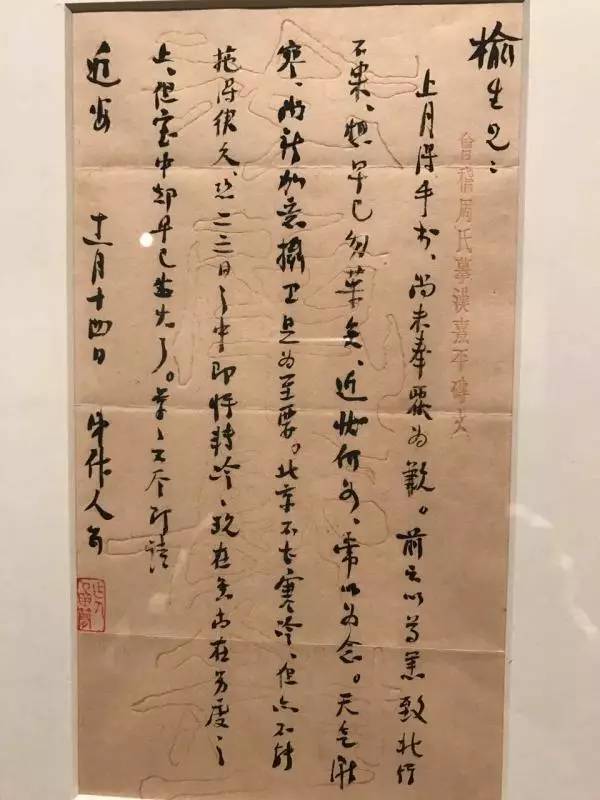 榆生兄：
會稽周氏摹漢熹平磚文
上月得手书、尚未奉覆为歉。前云以尊恙致北行
不果、想早已勿药矣、近状何如、常以为念。天气渐
寒、尚祈加意摄卫是为至要。北京不甚寒冷、但亦不能
拖得很久、恐二三日之中即将转冷、现在虽尚在零度之
上、但室中却早已生火了。草々不尽即请
近安 十一月十四日 作人